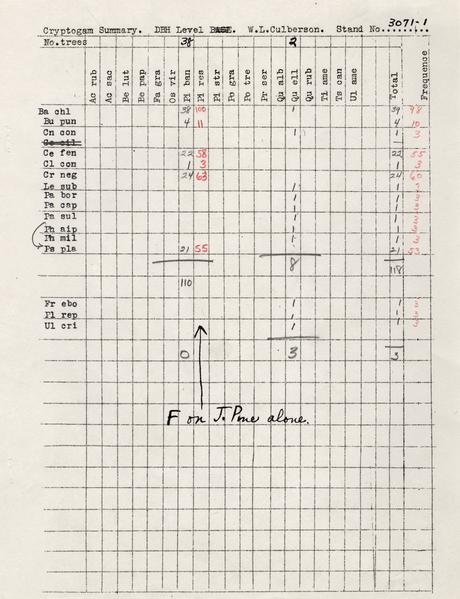 3071-1
Cryptogam Summary. DBH Level W.L.Culberson. Stand No.........
No.trees 38 2
Ac rub Ac sac Be lut Be pap Fa gra Os vir Pi ban Pi res Pi str Po gra Po tre Pr ser Qu alb Qu ell Qu rub Ti ame Ts can Ul ame Total Frequency
Ba chl 38 100 1 39 98
Bu pun 4 11 4 10
Cn con 1 1 3
Ce fen 22 58 22 55
Cl con 1 3 1 3
Cr neg 24 63 24 60
Le sub 1 1 3
Pa bor 1 1 3
Pa cap 1 1 3
Pa sul 1 1 3
Ph aip 1 1 3
Ph mil 1 1 3
Ps pla 21 55 21 53
8 118
110
Fr ebo 1 1 3
Pl rep 1 1 3
Ul cri 1 1 3
0 3 3
F on J. Pine alone.